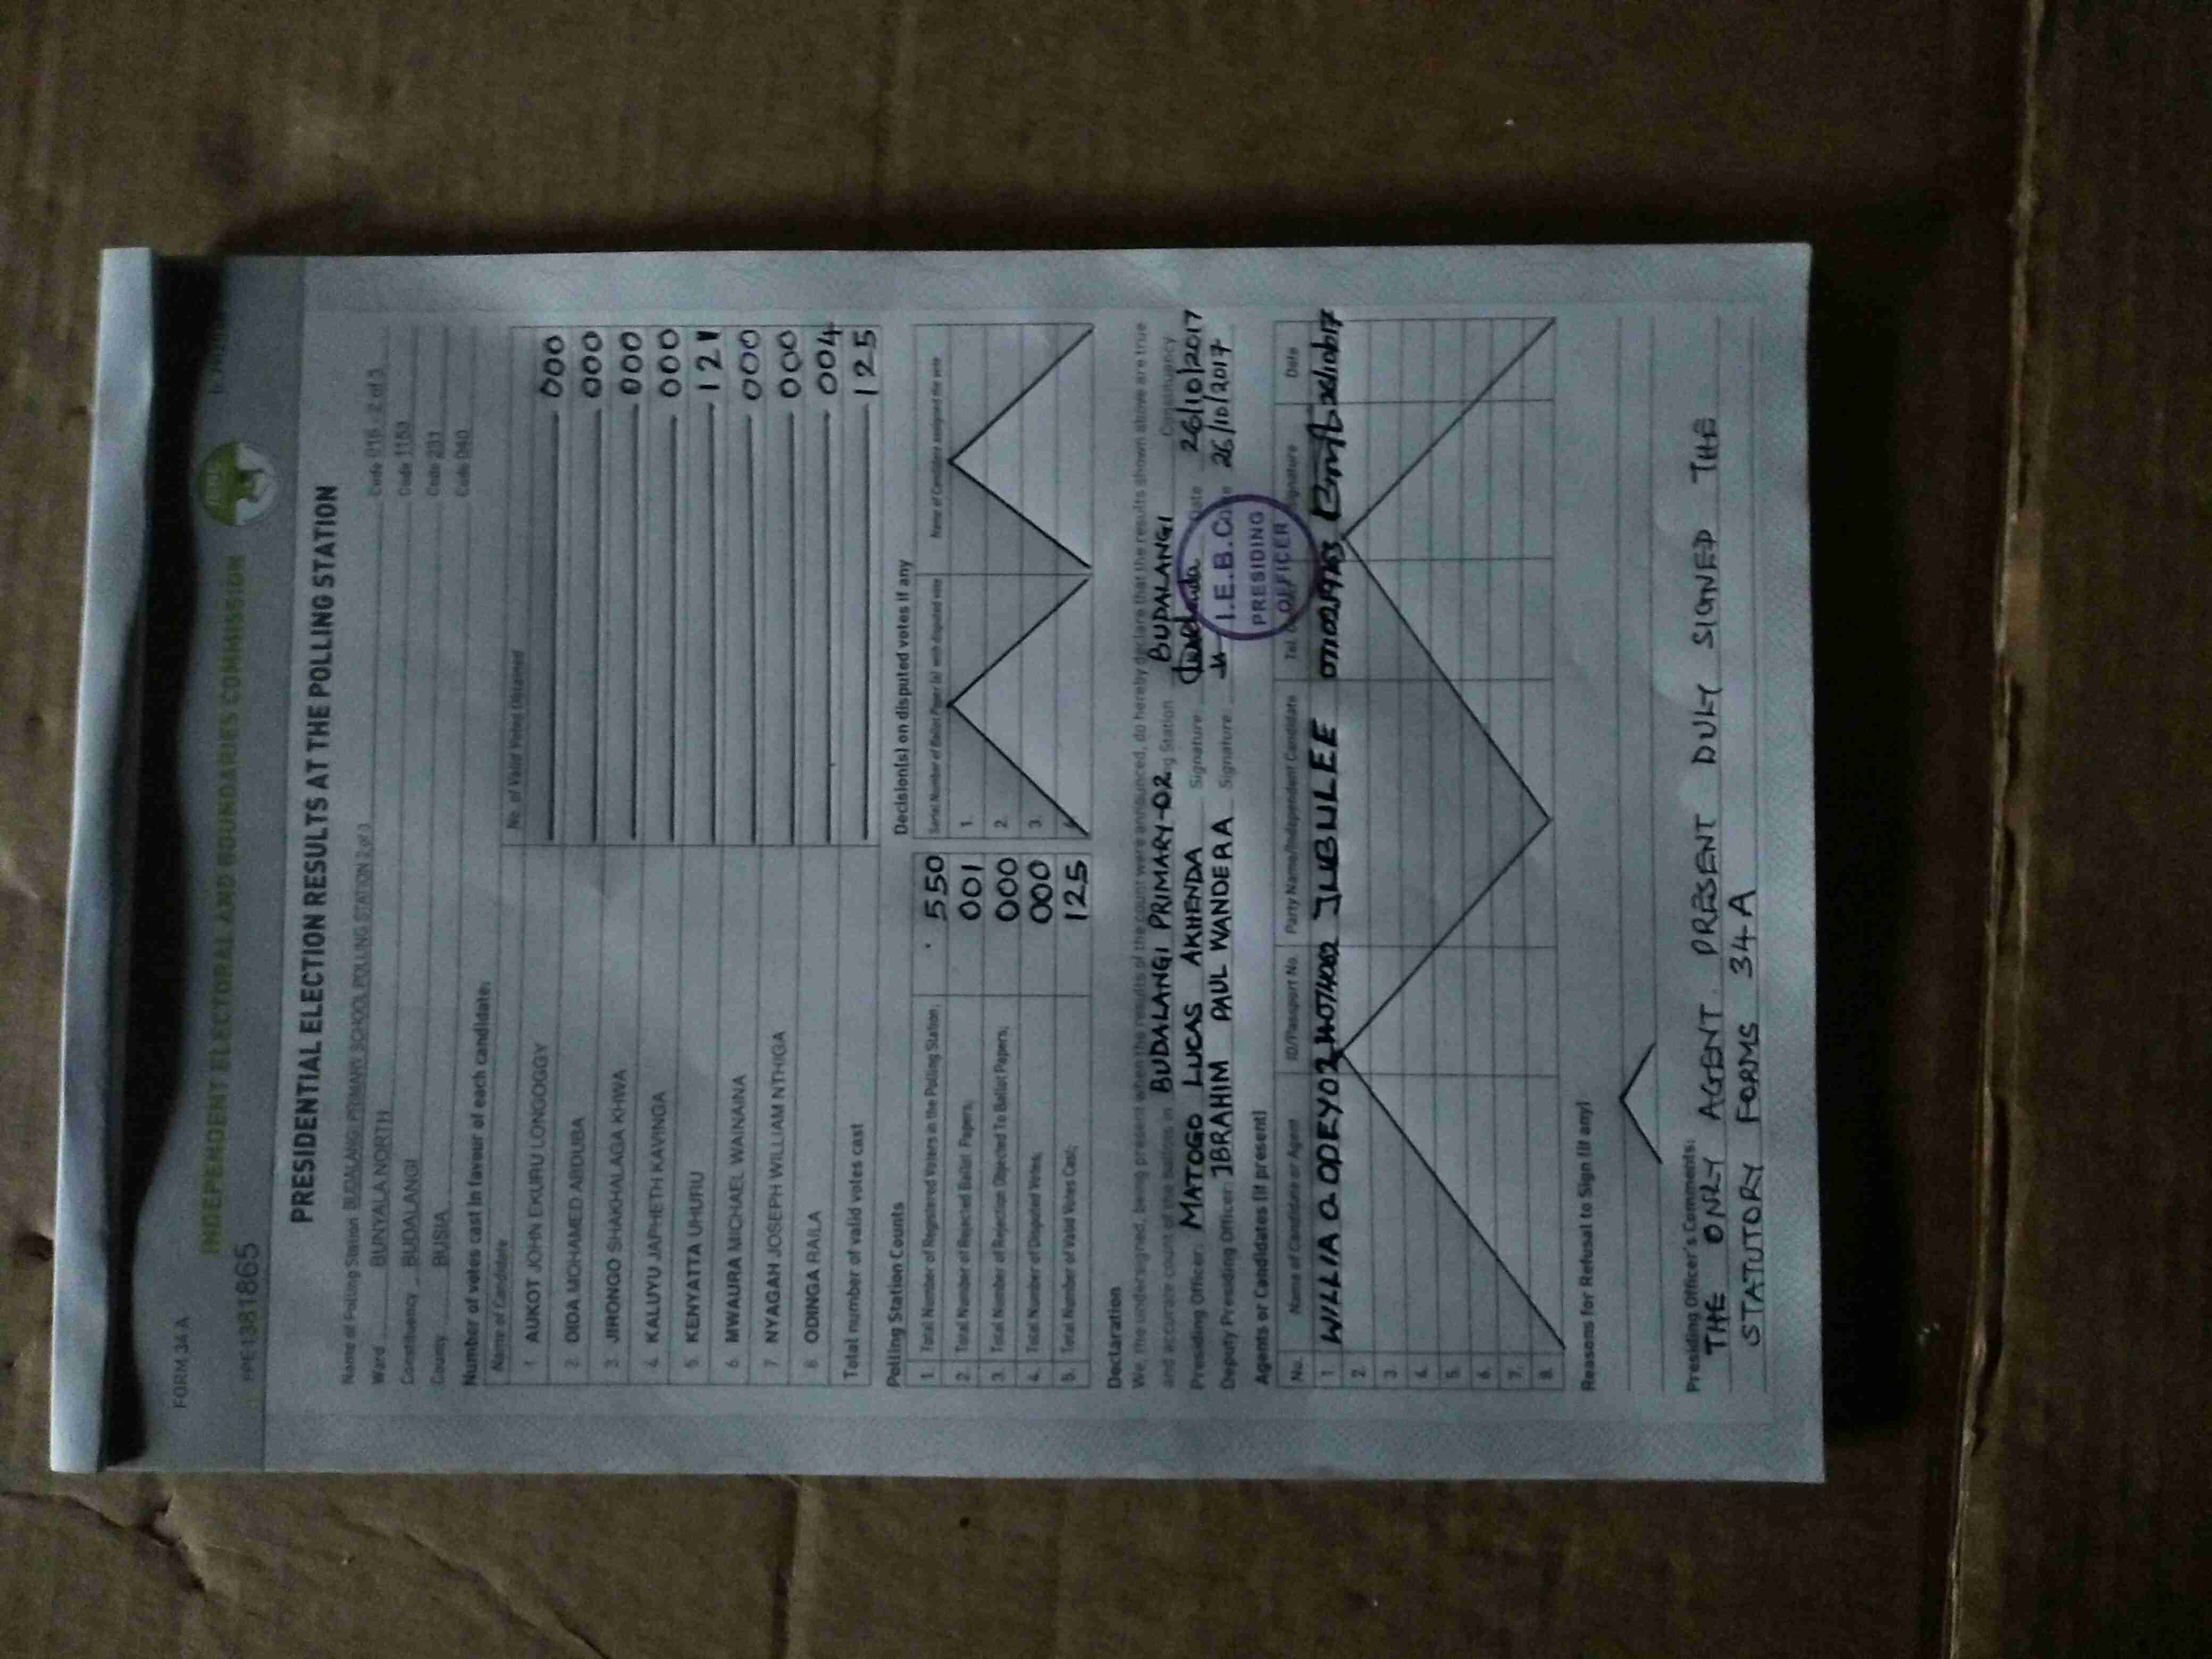 FORM 34A
INDEPENDENT ELECTORAL AND BOUNDARIES COMMISSION
PRESIDENTIAL ELECTION RESULTS AT THE POLLING STATION
Name of Polling Station BUDALANGI PRIMARY SCHOOL POLLING STATION 2 of 3 Code 016 - 2 of 3
Ward BUNYALA NORTH Code 1153
Constituency BUDALANGI Code 231
County BUSIA Code 040
Number of votes cast in favour of each candidate:
Name of Candidate No. of Valid Votes Obtained
1. AUKOT JOHN EKURU LONGOGGY 000
2. DIDA MOHAMED ABDUBA 000
3. JIRONGO SHAKHALAGA KHWA 000
4. KALUYU JAPHETH KAVINGA 000
5. KENYATTA UHURU 12
6. MWAURA MICHAEL WAINAINA 000
7. NYAGAH JOSEPH WILLIAM NTHIGA 000
8. ODINGA RAILA 004
Total number of valid votes cast 125
Polling Station Counts
1. Total Number of Registered Voters in the Polling Station; 550
2. Total Number of Rejected Ballot Papers; 001
3. Total Number of Rejection Objected To Ballot Papers; 000
4. Total Number of Disputed Votes; 000
5. Total Number of Valid Votes Cast; 125
Decision(s) on disputed votes if any
Serial Number of Ballot Paper (s) with disputed vote Name of Candidate assigned the vote
1.
2.
3.
Declaration
We, the undersigned, being present when the results of the count were announced, do hereby declare that the results shown above are true
and accurate count of the ballots in BUDALANGI PRIMARY-02 Station BUDALANGI Constituency
Presiding Officer: MATOGO LUCAS AKHENDA Signature: Date 26/10/2017
Deputy Presiding Officer: IBRAHIM PAUL WANDERA Signature: 26/10/2017
I.E.B.C
PRESIDING
OFFICER
Agents or Candidates (if present)
No. Name of Candidate or Agent ID/Passport No. Party Name/Independent Candidate Tel. Signature Date
1 JUBILEE
2.
3.
4.
5.
6.
7.
8.
Reasons for Refusal to Sign (if any)
Presiding Officer's Comments:
THE ONLY AGENT PRESENT DULY SIGNED THE
STATUTORY FORMS 34A